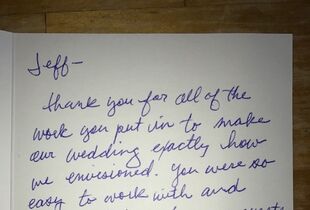 Jeff-
Thank you for all of the
work you put in to make
our wedding exactly how
we envisioned. You were so
easy to work with and